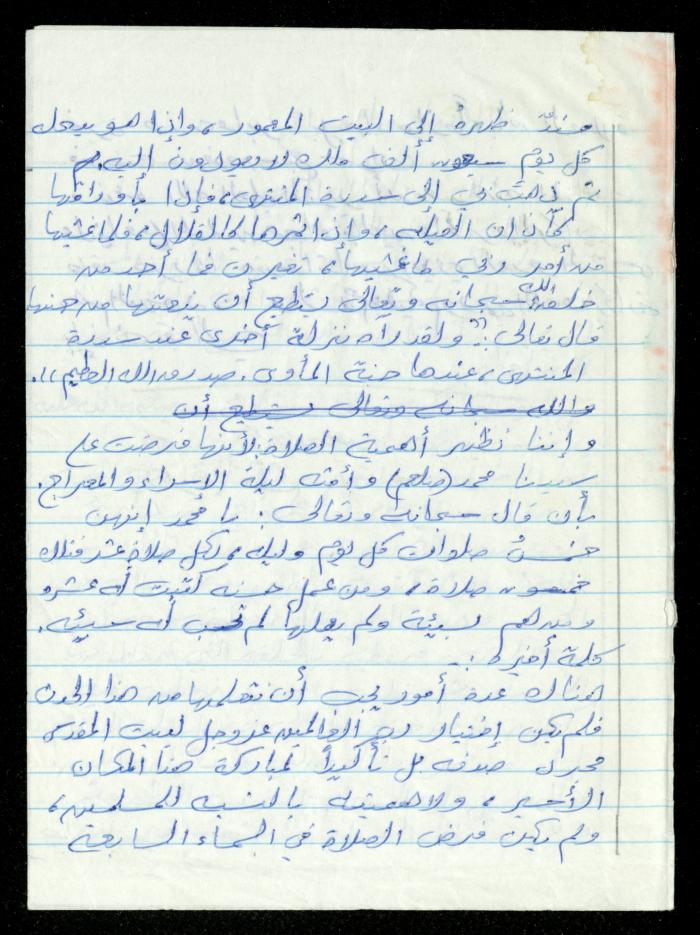 مسندٌ ظهرهُ إلى البيت المعمور، وإذا هو يدخله
كل يوم سبعون ألف ملك لا يعودون إليه.
ثم ذهب بي إلى سدرة المنتهى، فإذا بأوراقها
كآذان الفيله، وإذا ثمرها كالقلال، فلما غشيها
من أمر ربي ما غشيها، تغيرت فما أحد من
خلق الله سبحانه وتعالى يستطيع أن ينعتها من حسنها
قال تعالى: "ولقد رآه نزلة أخرى عند سدرة
المنتهى، عندها جنة المأوى. صدق الله العظيم".
والله سبحانه وتعالى يستطيع أن
وإننا نظهر أهمية الصلاة لأنها فرضت على
سيدنا محمد (صلعم) وأمته ليلة الاسراء والمعراج.
بأن قال سبحانه وتعالى: يا محمد إنهن
خمسُ صلوات كل يوم وليله، بكل صلاة عشر فتلك
خمسون صلاة، ومن عمل حسنه كتبت له عشره
ومن هم بسيئة ولم يعملها لم تكتب له سيئه.
كلمة أخيرة :.
هناك عدة أمور يجب أن نتعلمها من هذا الحدث
فلم يكن إختيار رب العالمين عز وجل لبيت المقدس
مجرد صدفه بل تأكيداً لمباركة هذا المكان
الأخير، ولاهميته بالنسبه للمسلمين،
ولم يكن فرض الصلاة في السماء السابعة